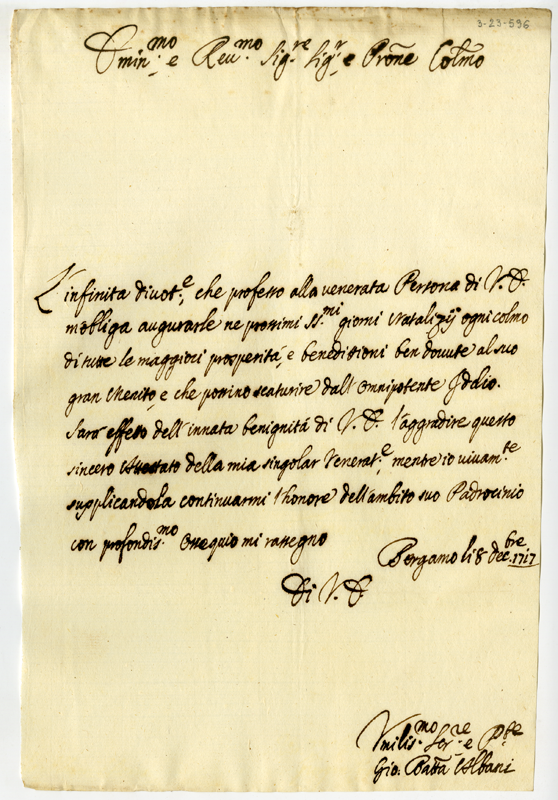 3-23-596
Emin.mo e Reu.mo Sig.re Sig.r e Prõne Colmo
L'infinita diuot.e, che professo alla venerata Persona di V. E.
m'obliga augurarle ne prossimi SS.mi giorni Natalizij ogni colmo
di tutte le maggiori prosperità, e benedittioni ben douute al suo
gran Merito, e che possino scaturire dall'Omnipotente Iddio.
Sarà effetto dell'innata benignità di V. E. l'aggradire questo
sincero Attestato della mia singolar Venerat.e, mentre io viuam.te
supplicandola continuarmi l'honore dell'ambito suo Padrocinio
con profondis.mo Ossequio mi rassegno
Bergamo li 8 dec.bre 1717
Di V. E.
Vmilis.mo Ser.re e
Gio. Batta Albani